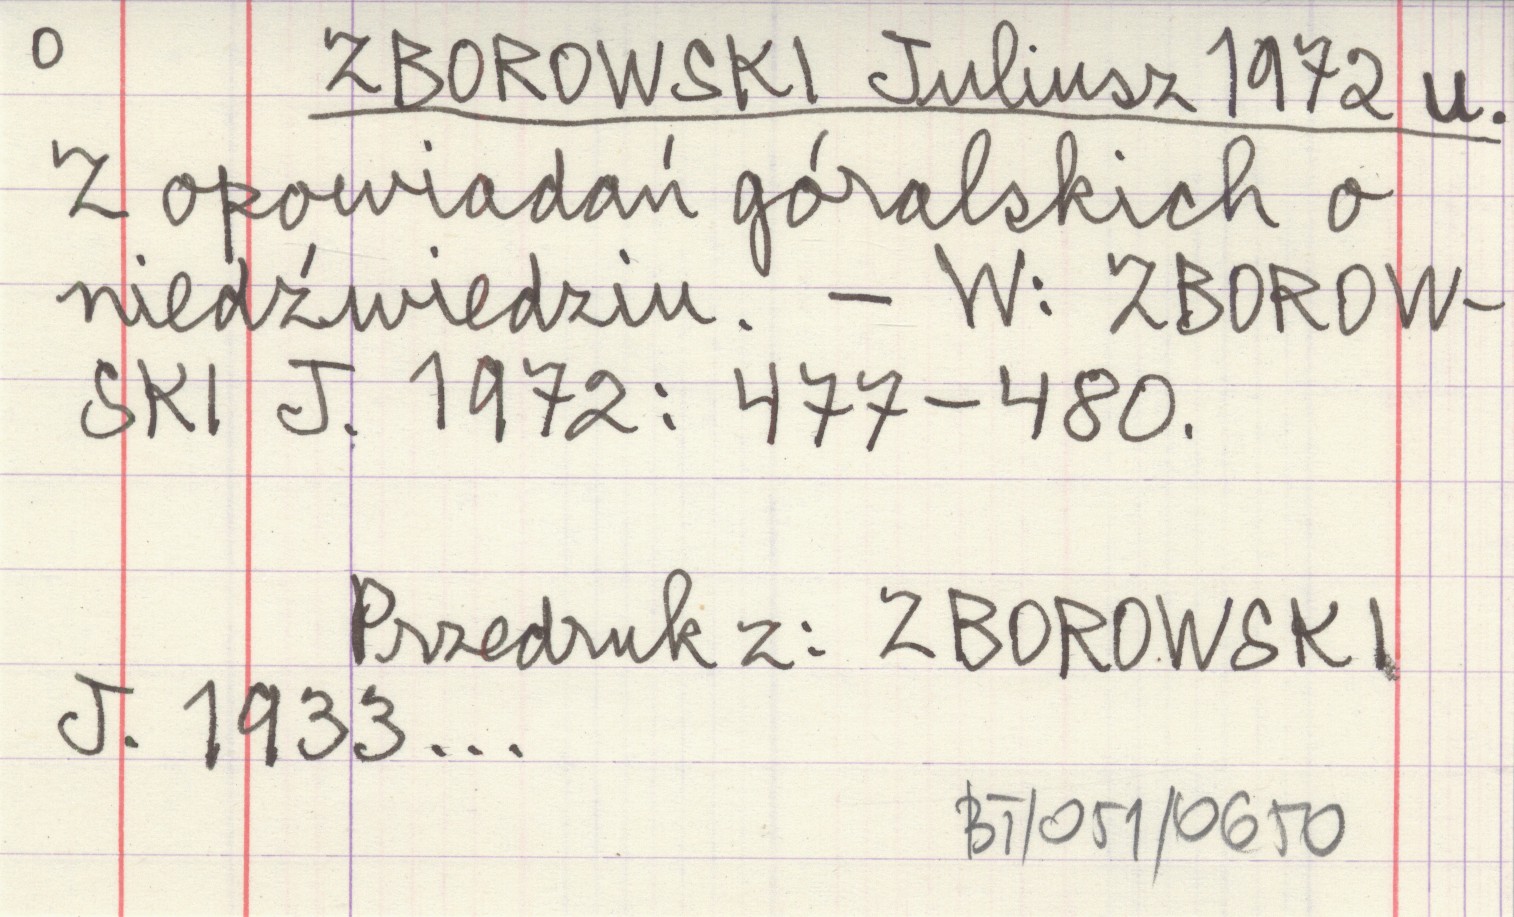 o ZBOROWSKI Juliusz 1972 u.
Z opowiadań góralskich o
niedźwiedziu. – W: ZBOROW-
SKI J. 1972: 477–480.
Przedruk z: ZBOROWSKI
J. 1933...
BT/051/0650